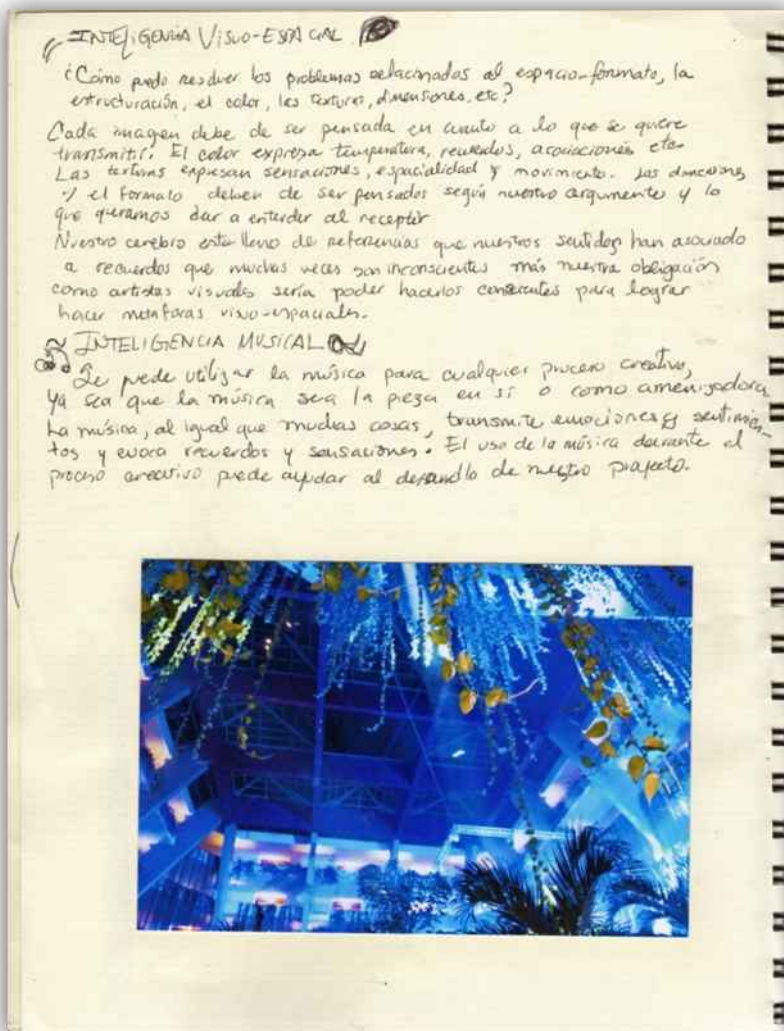 INTELIGENCIA VISUO-ESPACIAL
¿Cómo puedo resolver los problemas relacionados al espacio-formato, la
estructuración, el color, las texturas, dimensiones, etc?
Cada imagen debe de ser pensada en cuanto a lo que se quiere
transmitir. El color expresa temperatura, recuerdos, asociaciones etc.
Las texturas expresan sensaciones, espacialidad y movimiento. Las dimensiones
y el formato deben de ser pensados según nuestro argumento y lo
que queramos dar a entender al receptor
Nuestro cerebro esta lleno de referencias que nuestros sentidos han asociado
a recuerdos que muchas veces son inconscientes más nuestra obligación
como artistas visuales sería poder hacerlos conscientes para lograr
hacer metáforas visuo-espaciales.
INTELIGENCIA MUSICAL
Se puede utilizar la música para cualquier proceso creativo,
ya sea que la música sea la pieza en sí o como amenizadora
La música, al igual que muchas cosas, transmite emociones y sentimien-
tos y evoca recuerdos y sensaciones. El uso de la música durante el
proceso creativo puede ayudar al desarrollo de nuestro proyecto.